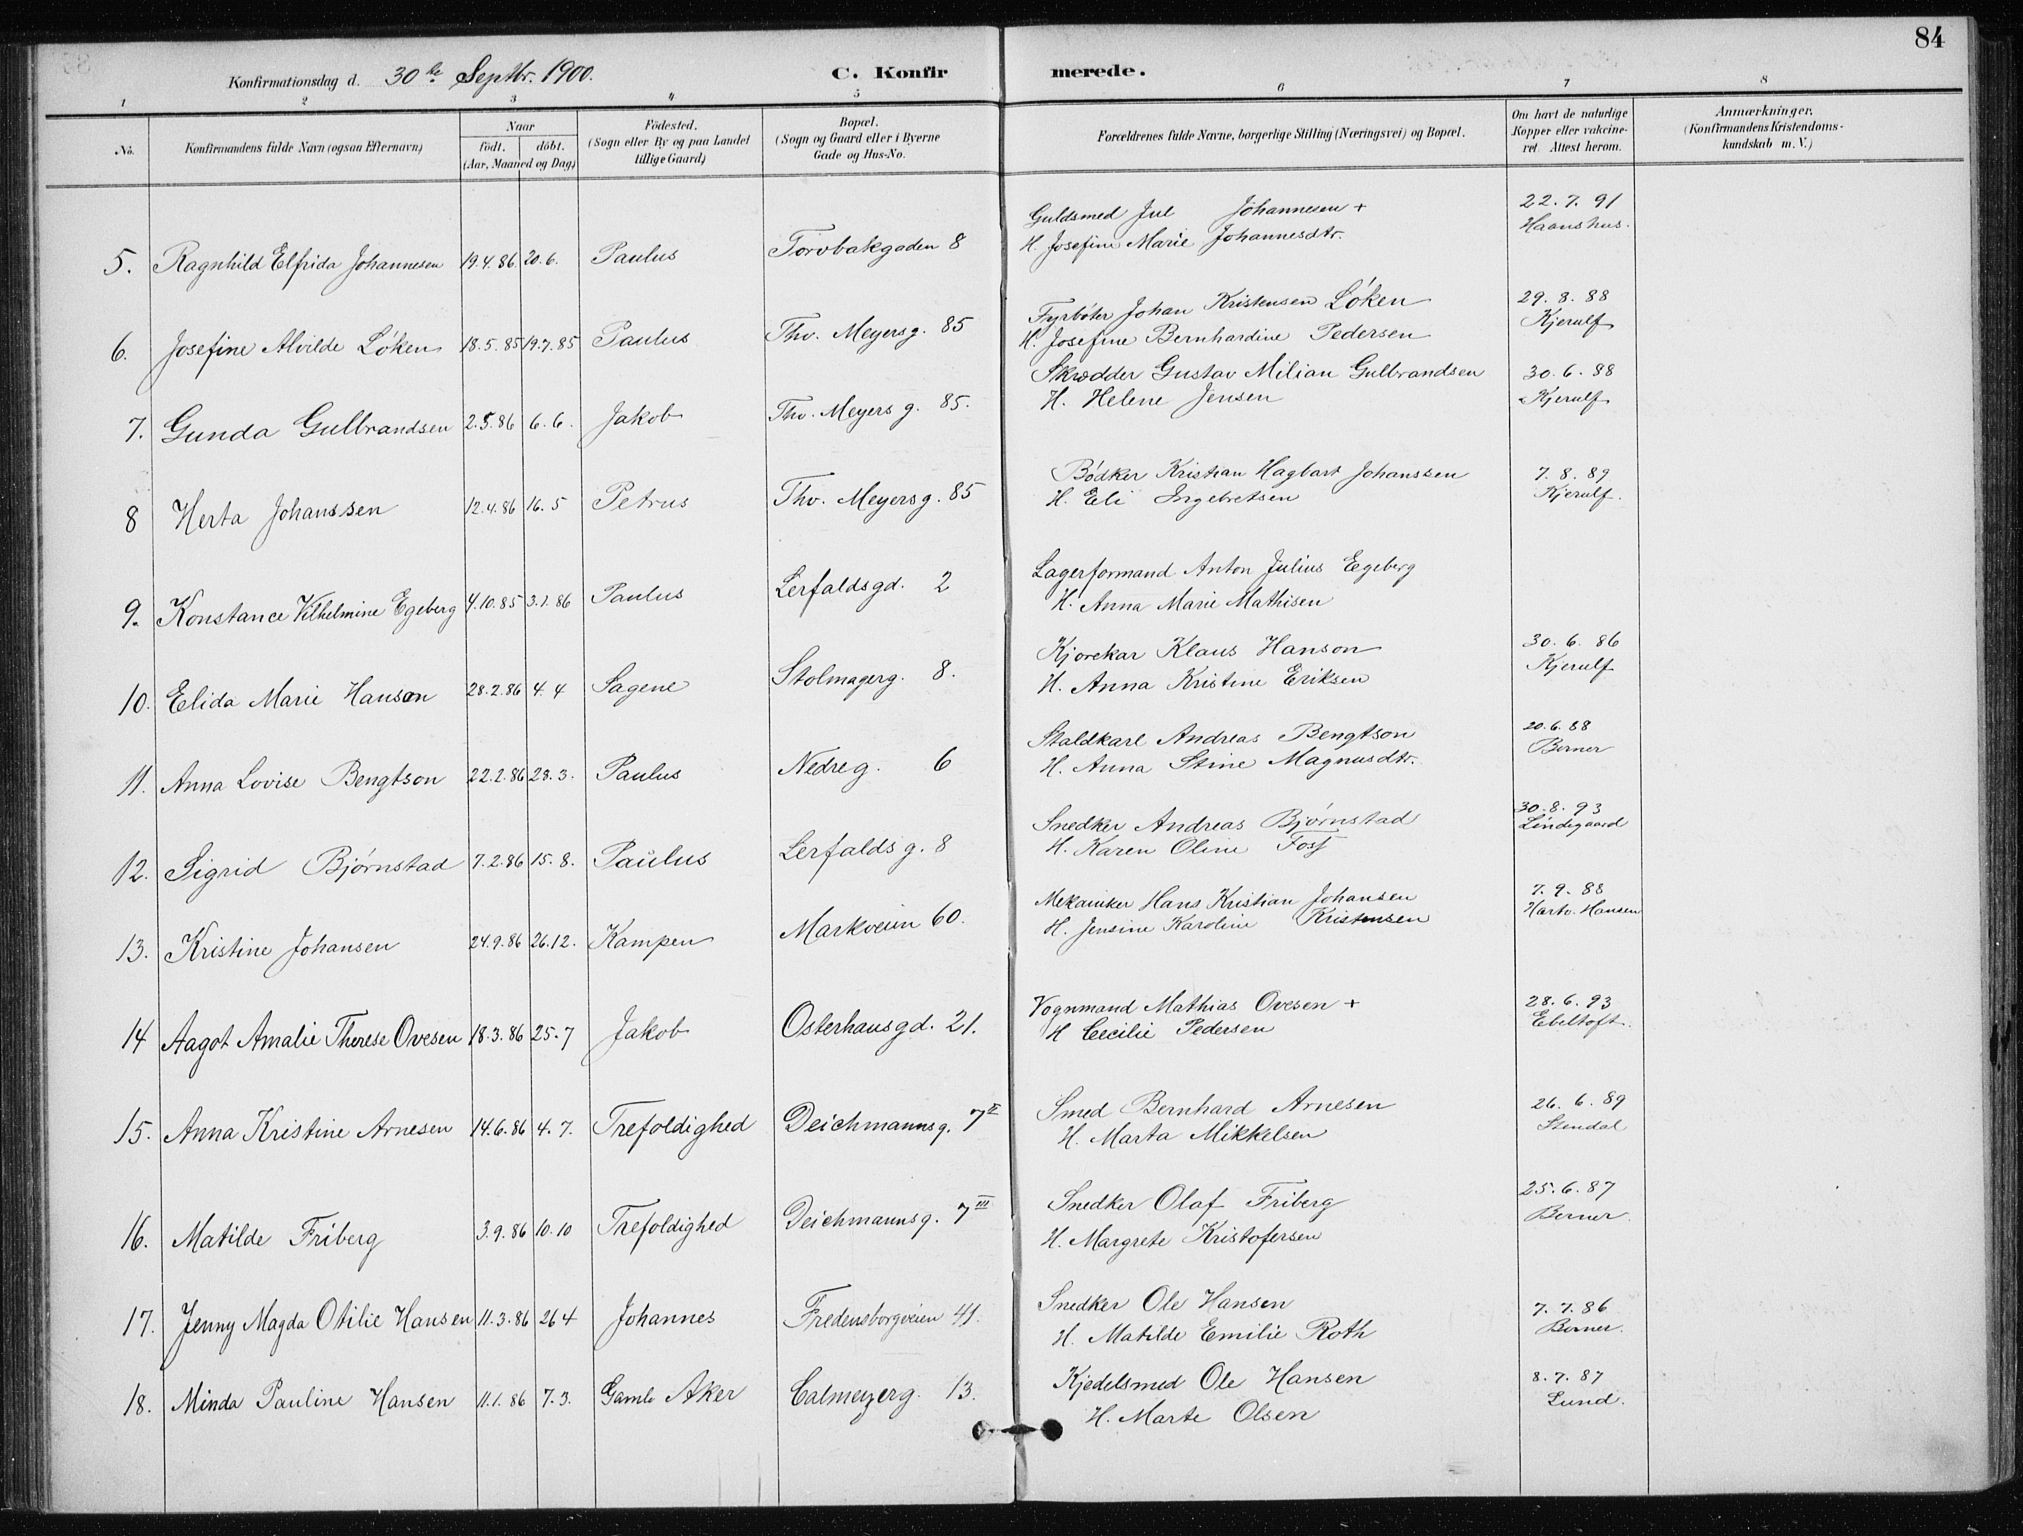 84
Konfirmationsdag d. 30te Septbr. 1900.
C. Konfir merede.
1 2 3 4 5 6 7 8
No. Konfirmandens fulde Navn (ogsaa Efternavn) Naar født. døbt. (Aar, Maaned og Dag) Fødested. (Sogn eller By og paa Landet tillige Gaard) Bopæl. (Sogn og Gaard eller i Byerne Gade og Hus-No. Forældrenes fulde Navne, borgerlige Stilling (Næringsvei) og Bopæl. Om havt de naturlige Kopper eller vakcineret. Attest herom. Anmærkninger. (Konfirmandens Kristendomskundskab m. V.)
Guldsmed Jul Johannesen + 22.7.91
5. Ragnhild Elfrida Johannesen 19.4.86 20.6. Paulus Torvbakgaden 8 H. Josefine Marie Johannesdtr. Haanshus.
Fyrbøter Johan Kristensen Løken 29.8.88
6. Josefine Alvilde Løken 18.5.85 19.7.85 Paulus Thv. Meyersg. 85 H. Josefine Bernhardine Pedersen Kjerulf
Skrædder Gustav Milian Gulbrandsen 30.6.88
7. Gunda Gulbrandsen 2.5.86 6.6. Jakob Thv. Meyers g. 85. H. Helene Jensen Kjerulf
Bødker Kristian Hagbart Johanssen 7.8.89
8 Herta Johanssen 12.4.86 16.5 Petrus Thv. Meyersg. 85 H. Eli Ingebretsen Kjerulf.
Lagerformand Anton Julius Egeberg
9. Konstance Vilhelmine Egeberg 4.10.85 3.1.86 Paulus Lerfaldsgd. 2 H. Anna Marie Mathisen
Kjørekar Klaus Hanson 30.6.86
10. Elida Marie Hanson 28.2.86 4.4 Sagene Stolmagerg. 8. H. Anna Kristine Eriksen Kjerulf
Staldkarl Andreas Bengtson 20.6.88
11. Anna Lovise Bengtson 22.2.86 28.3. Paulus Nedre g. 6 H. Anna Stine Magnusdtr. Berner
Snedker Andreas Bjørnstad 30.8.93
12. Sigrid Bjørnstad 7.2.86 15.8. Paulus Lerfalds g. 8 H. Karen Oline Foss Lindegaard
Mekaniker Hans Kristian Johansen 7.9.88
13. Kristine Johansen 24.9.86 26.12. Kampen Markveien 60. H. Jensine Karoline Kristensen Hartv. Hansen
Vognmand Mathias Ovesen + 28.6.93
14 Aagot Amalie Therese Ovesen 18.3.86 25.7 Jakob Osterhausgd. 21. H Cecilie Pedersen Ebeltoft.
Smed Bernhard Arnesen 26.6.89
15. Anna Kristine Arnesen 14.6.86 4.7. Trefoldighed Deichmannsg. 7 II H. Marta Mikkelsen Stendal
Snedker Olaf Friberg 25.6.87
16. Matilde Friberg 3.9.86 10.10 Trefoldighed Deichmannsg. 7 III H. Margrete Kristofersen Berner.
Snedker Ole Hansen 7.7.86
17. Jenny Magda Otilie Hansen 11.3.86 26 4 Johannes Fredensborgveien 41. H. Matilde Emilie Roth Berner.
Kjedelsmed Ole Hansen 8.7.87
18. Minda Pauline Hansen 11.1.86 7.3. Gamle Aker Calmeyerg. 13. H. Marte Olsen Lund.